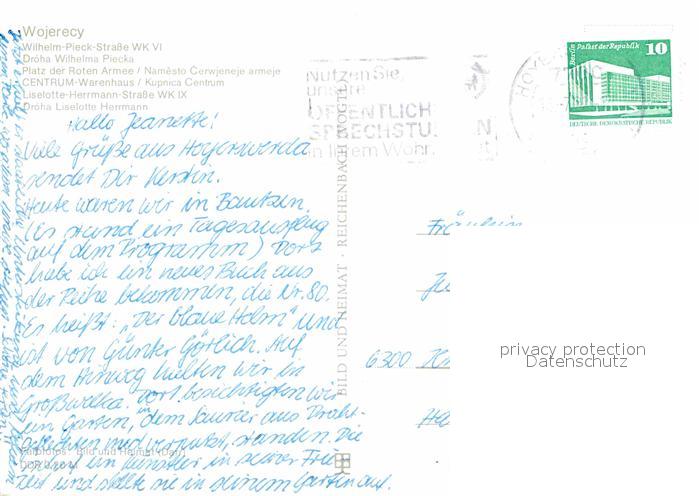 Wojerecy
Wilhelm-Pieck-Straße WK VI
Dróha Wilhelma Piecka
Platz der Roten Armee / Naměsto Čerwjeneje armeje
CENTRUM-Warenhaus / Kupnica Centrum
Liselotte-Herrmann-Straße WK IX
Dróha Liselotte Herrmann
Hallo Jeanette!
Viele Grüße aus Hoyerswerda
sendet Dir Kerstin.
Heute waren wir in Bautzen.
(Es stand ein Tagesausflug
auf dem Programm) Dort
habe ich ein neues Buch aus
der Reihe bekommen, die Nr. 80.
Es heißt: „Der blaue Helm" und
ist von Günter Görlich. Auf
dem Hinweg hielten wir in
Großwelka. Dort besichtigten wir
ein Garten, in dem Saurier aus Draht-
geflechten und verputzt, standen. Die
ein Künstler in seiner Frei-
zeit und stellte sie in seinem Garten auf.
Farbfotos: Bild und Heimat
BILD UND HEIMAT · REICHENBACH (VOGTL)
Nutzen Sie
unsere
ÖFFENTLICH
SPRECHSTU EN
in Ihrem Wohn
Berlin Palast der Republik
10
DEUTSCHE DEMOKRATISCHE REPUBLIK
Fräulein
Je
6300
privacy protection
Datenschutz